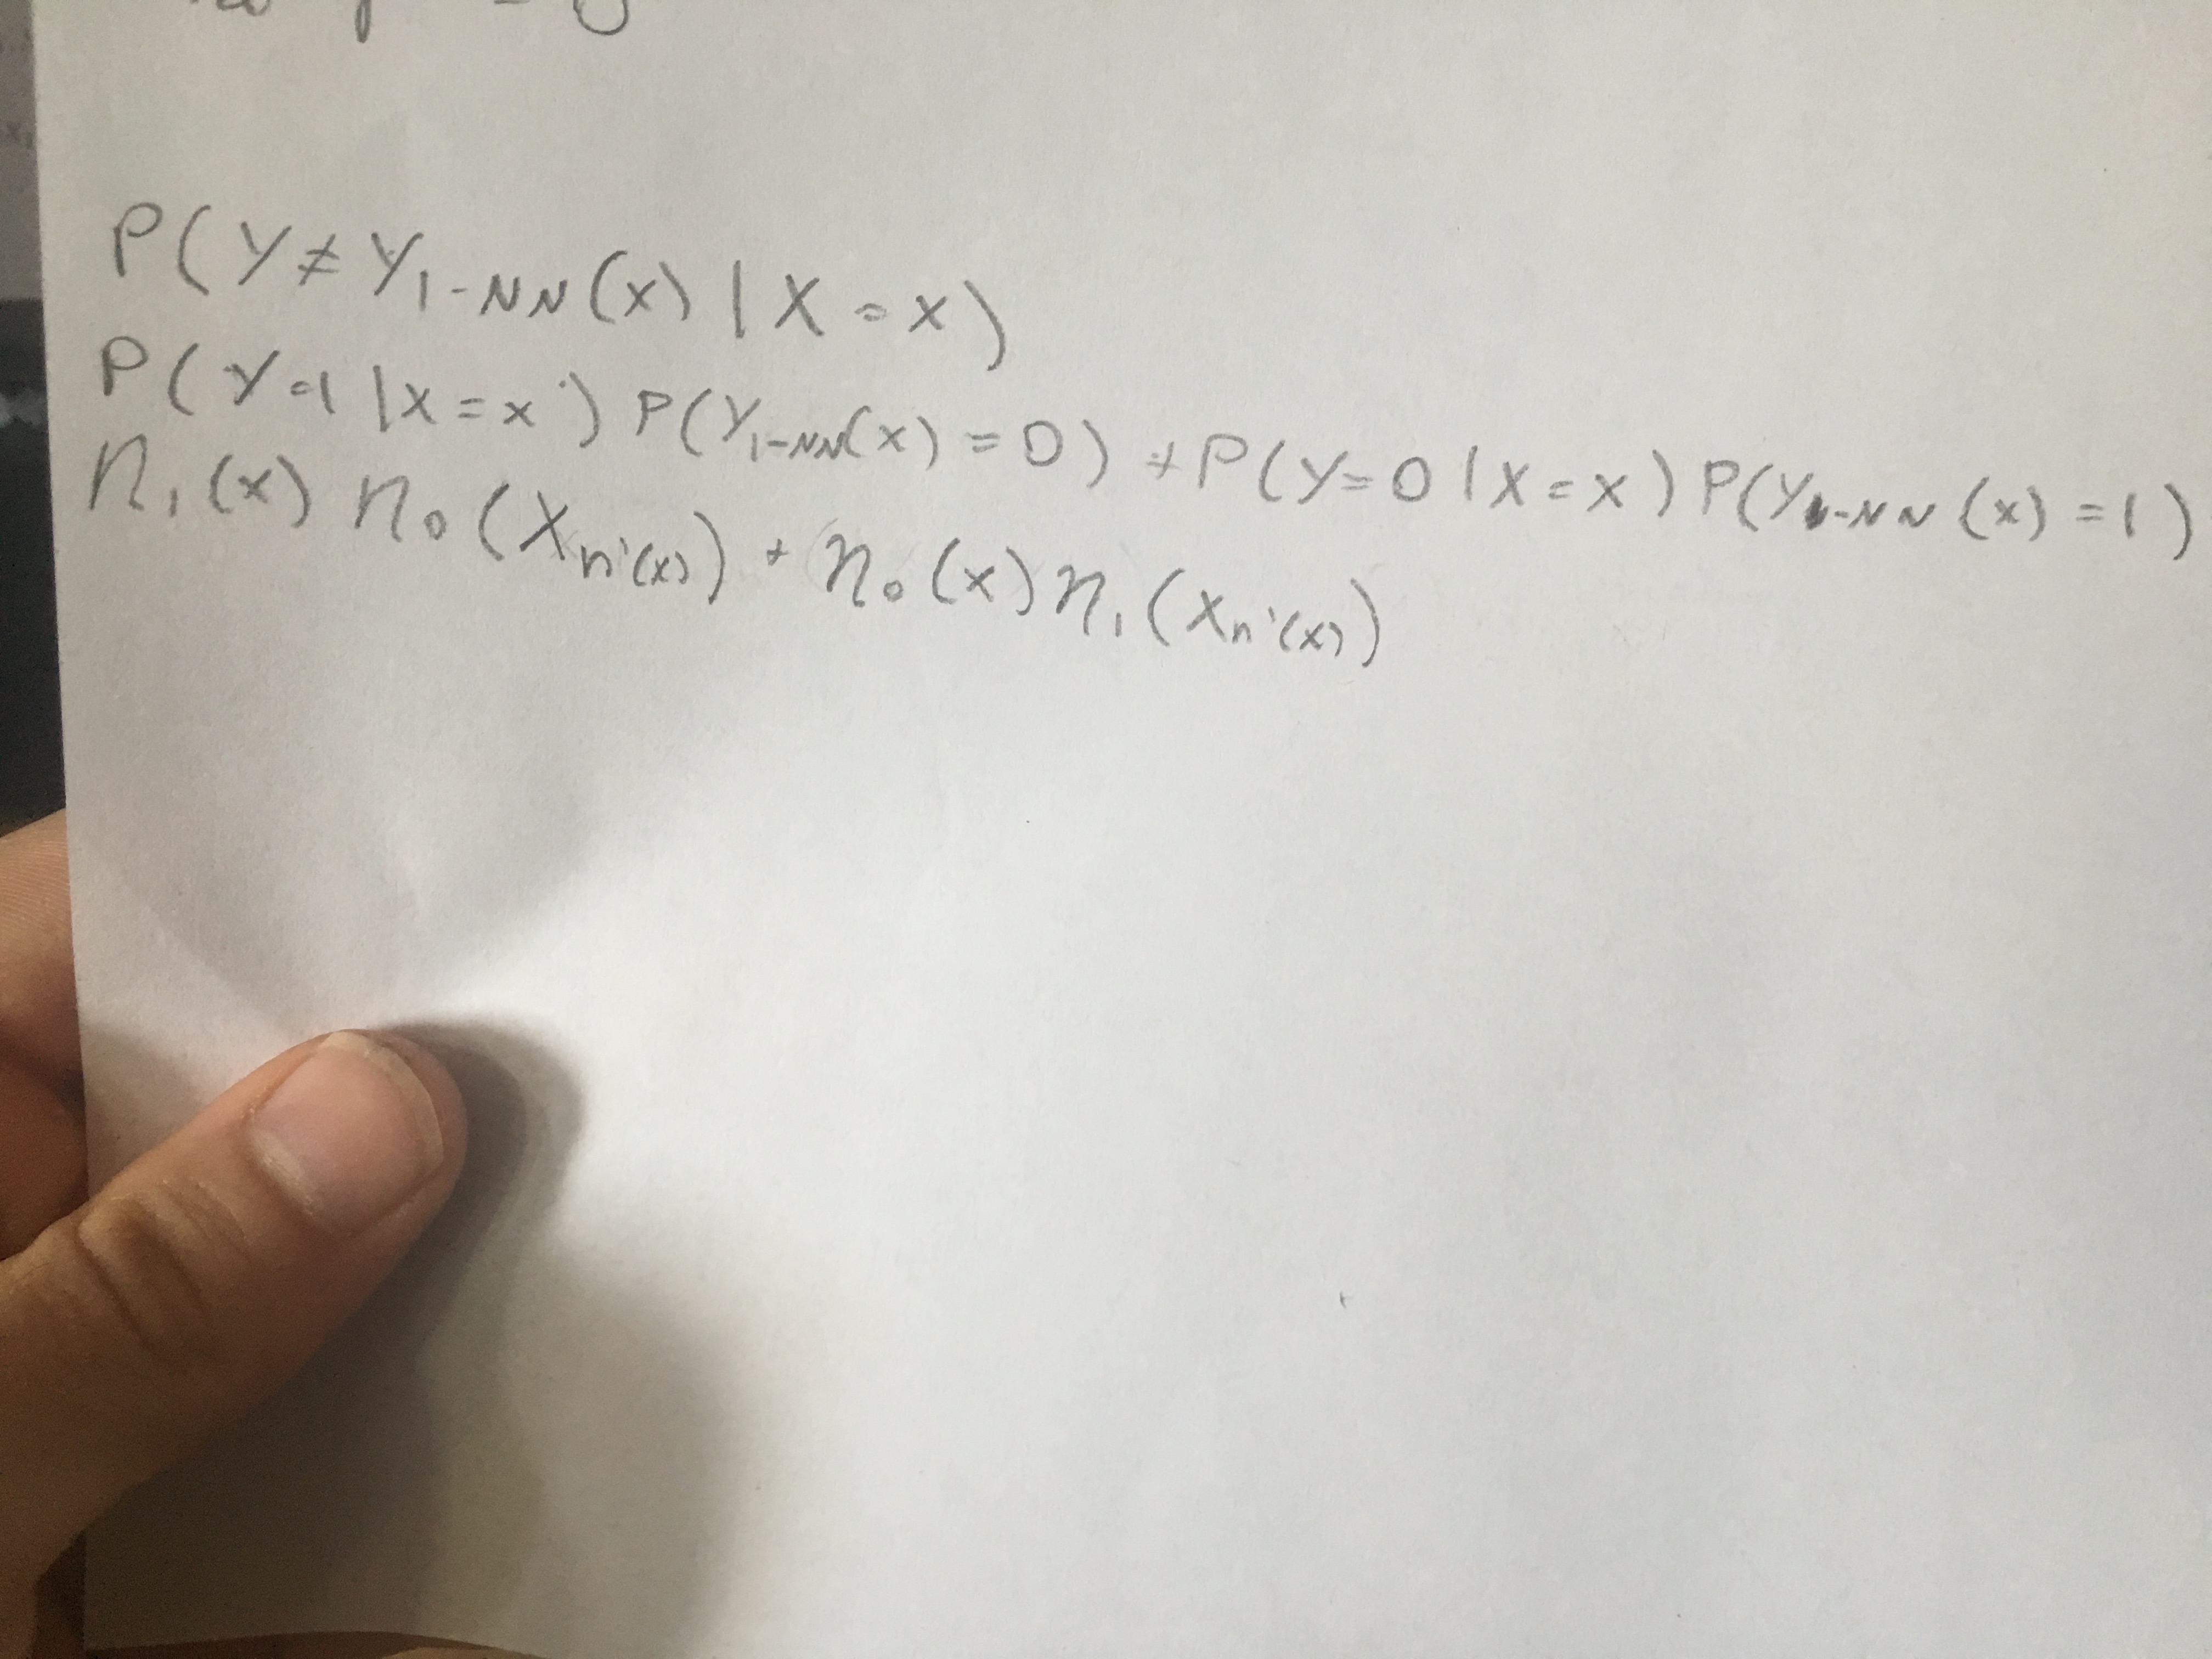 P(Y≠Y₁₋NN(x) | X=x)
P(Y=1 | X=x) P(Y₁₋NN(x) = 0) + P(Y=0 | X=x) P(Y₁₋NN(x) = 1)
η₁(x) η₀(Xn'(x)) + η₀(x) η₁(Xn'(x))